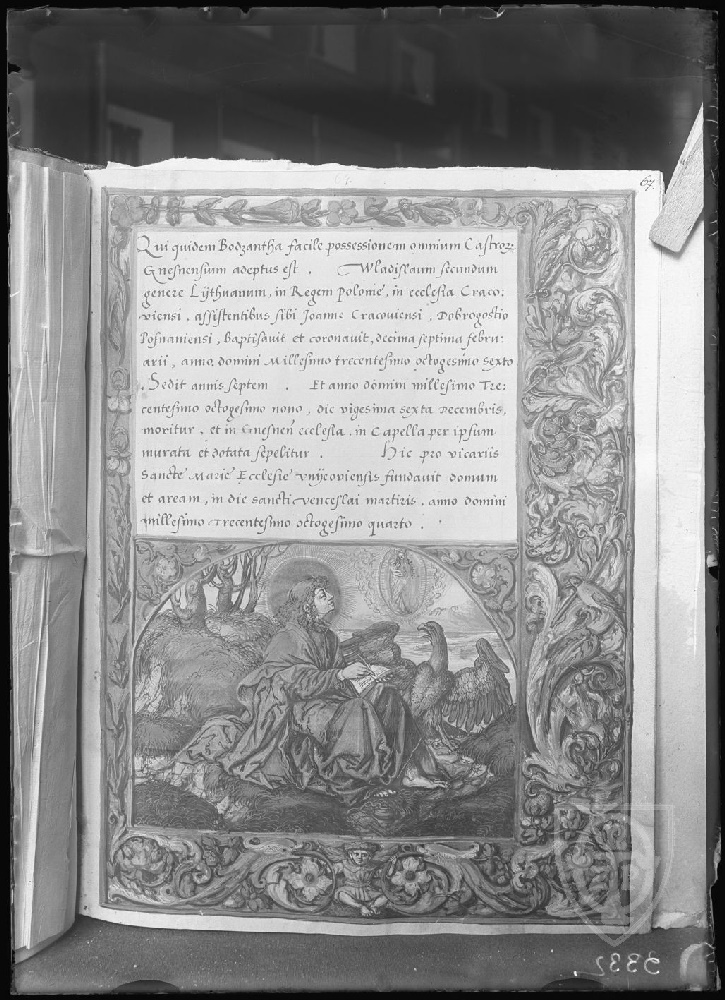 67
Qui quidem Bodzantha facile possessionem omnium Castroꝝ
Gnesnensium adeptus est . Wladislaum secundum
genere Lÿthuanum, in Regem Polonie, in ecclesia Craco:
viensi , assistentibus sibi Joanne Cracouiensi , Dobrogostio
Posnaniensi , baptisauit et coronauit, decima septima febru:
arii , anno domini Millesimo trecentesimo octogesimo sexto
. Sedit annis septem . Et anno domini millesimo Tre:
centesimo octogesimo nono , die vigesima sexta Decembris,
moritur , et in Gnesnen ecclesia , in Capella per ipsum
murata et dotata sepelitur . Hic pro vicariis
Sancte Marie Ecclesie vnÿeoviensis fundauit domum
et aream , in die sancti venceslai martiris . anno domini
millesimo trecentesimo octogesimo quarto .